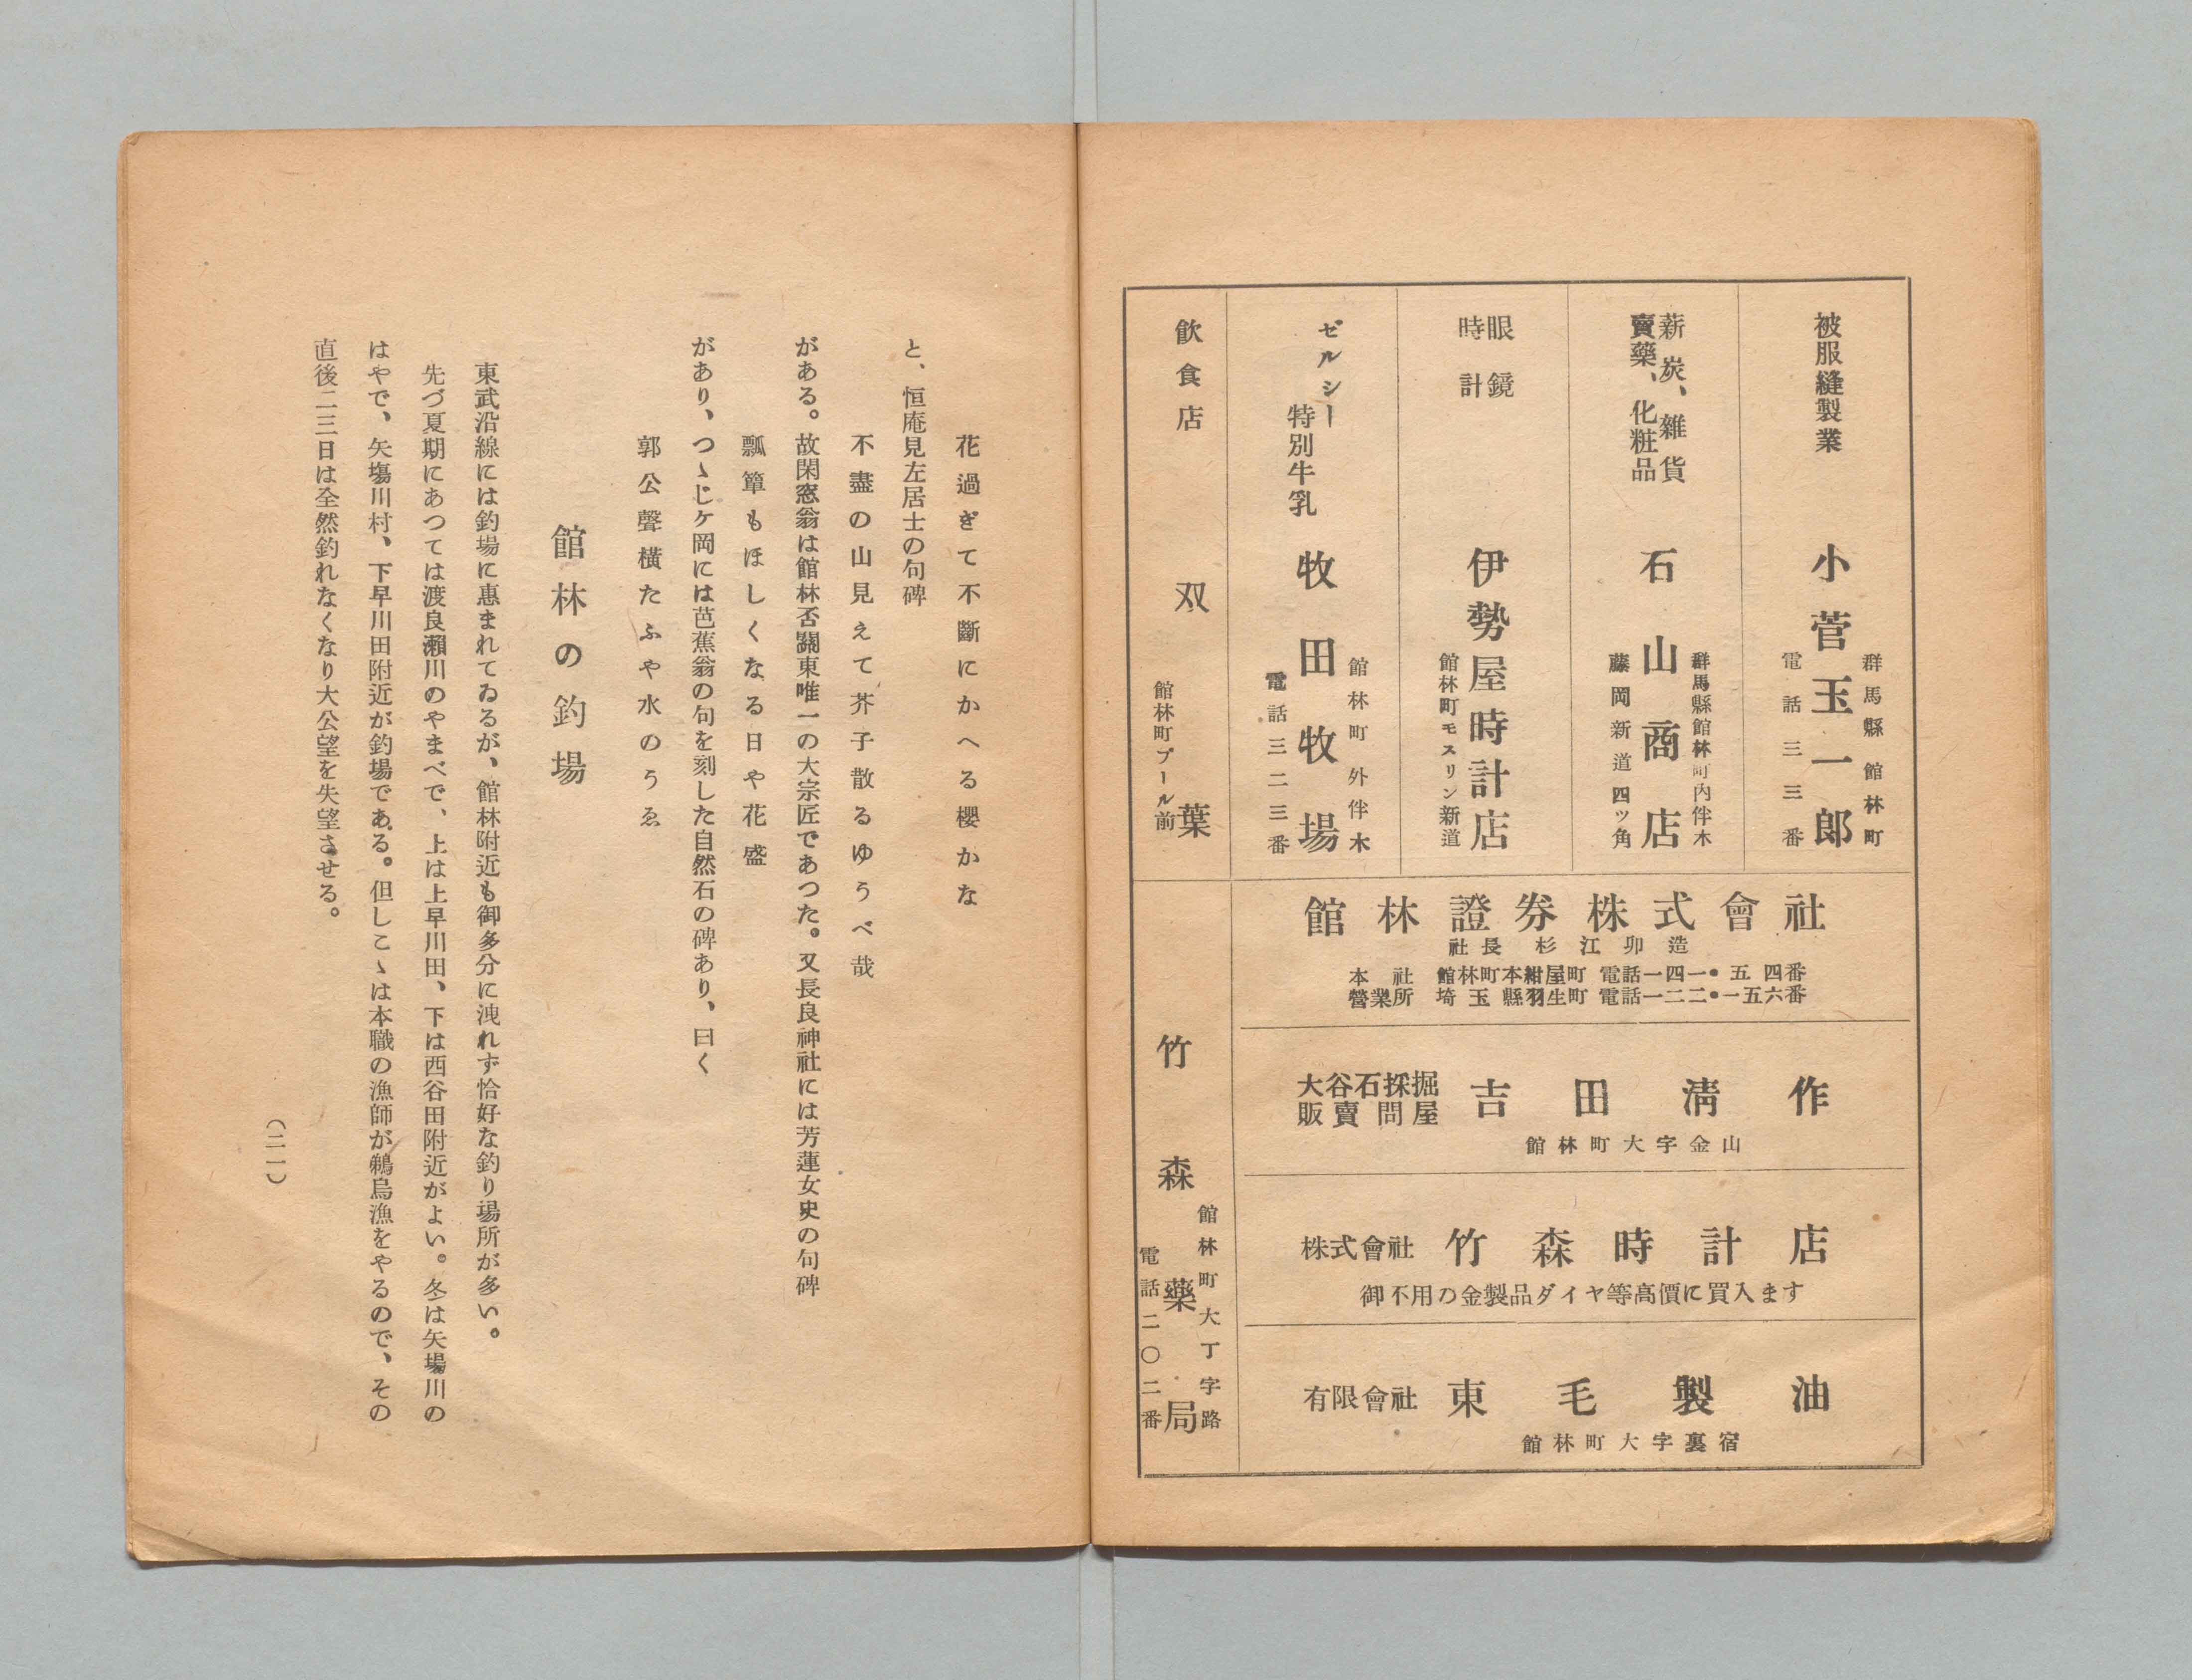 被服縫製業
小菅玉一郎
群馬縣館林町
電話三三番
薪炭、雜貨
賣藥、化粧品
石山商店
群馬縣館林町内伴木
藤岡新道四ッ角
眼鏡
時計
伊勢屋時計店
館林町モスリン新道
ゼルシー
特別牛乳
牧田牧場
館林町外伴木
電話三二三番
飮食店
双葉
館林町プール前
館林證券株式會社
社長 杉江卯造
本社 館林町本紺屋町 電話一四一•五四番
營業所 埼玉縣羽生町 電話一二二•一五六番
大谷石採掘
販賣問屋
吉田淸作
館林町大字金山
株式會社 竹森時計店
御不用の金製品ダイヤ等高價に買入ます
有限會社 東毛製油
館林町大字裏宿
竹森藥局
館林町大丁字路
電話二〇二番
花過ぎて不斷にかへる櫻かな
と、恒庵見左居士の句碑
不盡の山見えて芥子散るゆうべ哉
がある。故閑窓翁は館林否關東唯一の大宗匠であつた。又長良神社には芳蓮女史の句碑
瓢簞もほしくなる日や花盛
があり、つゝじヶ岡には芭蕉翁の句を刻した自然石の碑あり、曰く
郭公聲橫たふや水のうゑ
館林の釣場
東武沿線には釣場に惠まれてゐるが、館林附近も御多分に洩れず恰好な釣り場所が多い。
先づ夏期にあつては渡良瀨川のやまべで、上は上早川田、下は西谷田附近がよい。冬は矢場川の
はやで、矢塲川村、下早川田附近が釣場である。但しこゝは本職の漁師が鵜烏漁をやるので、その
直後二三日は全然釣れなくなり大公望を失望させる。
（二一）